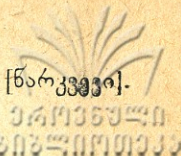 [ნარკვევი].
ეროვნული
ბიბლიოთეკა